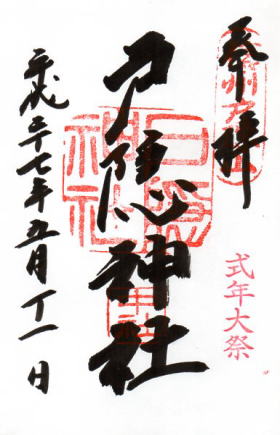 奉拝
信州戸隠山
式年大祭
戸隠神社
戸隠神社
中社
平成二十七年五月十一日